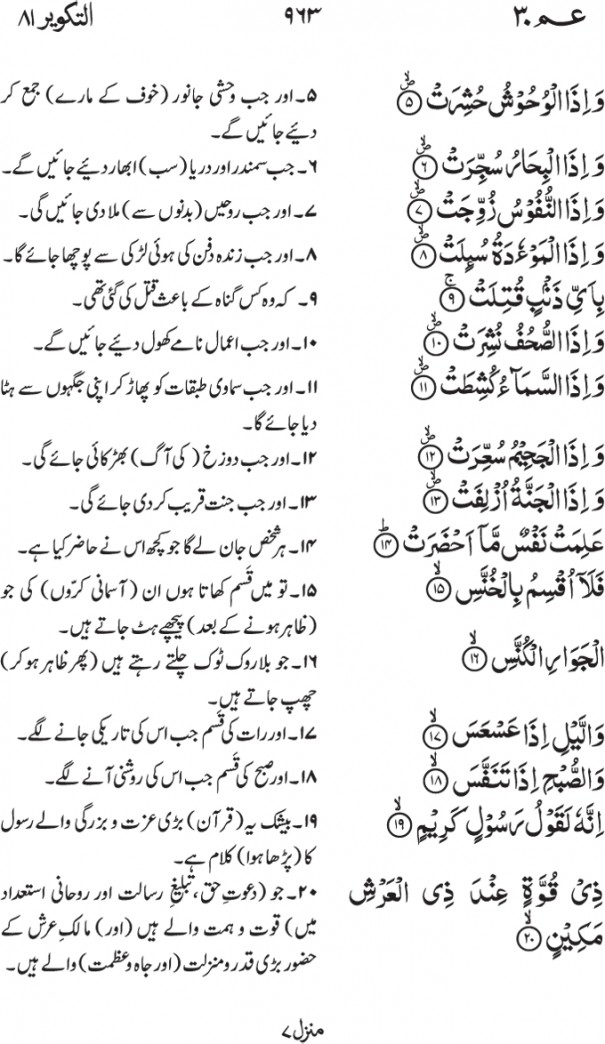 عــم ۳۰ ۹۶۳ التکویر ۸۱
وَ اِذَا الۡوُحُوۡشُ حُشِرَتۡ ﴿۵﴾۪ۙ
۵۔ اور جب وحشی جانور (خوف کے مارے) جمع کر
دیئے جائیں گے۔
وَ اِذَا الۡبِحَارُ سُجِّرَتۡ ﴿۶﴾۪ۙ
۶۔ جب سمندر اور دریا (سب) ابھار دیئے جائیں گے۔
وَ اِذَا النُّفُوۡسُ زُوِّجَتۡ ﴿۷﴾۪ۙ
۷۔ اور جب روحیں (بدنوں سے) ملا دی جائیں گی۔
وَ اِذَا الۡمَوۡءٗدَۃُ سُئِلَتۡ ﴿۸﴾۪ۙ
۸۔ اور جب زندہ دفن کی ہوئی لڑکی سے پوچھا جائے گا۔
بِاَیِّ ذَنۡۢبٍ قُتِلَتۡ ﴿۹﴾ۚ
۹۔ کہ وہ کس گناہ کے باعث قتل کی گئی تھی۔
وَ اِذَا الصُّحُفُ نُشِرَتۡ ﴿۱۰﴾۪ۙ
۱۰۔ اور جب اعمال نامے کھول دیئے جائیں گے۔
وَ اِذَا السَّمَآءُ کُشِطَتۡ ﴿۱۱﴾۪ۙ
۱۱۔ اور جب سماوی طبقات کو پھاڑ کر اپنی جگہوں سے ہٹا
دیا جائے گا۔
وَ اِذَا الۡجَحِیۡمُ سُعِّرَتۡ ﴿۱۲﴾۪ۙ
۱۲۔ اور جب دوزخ (کی آگ) بھڑکائی جائے گی۔
وَ اِذَا الۡجَنَّۃُ اُزۡلِفَتۡ ﴿۱۳﴾۪ۙ
۱۳۔ اور جب جنت قریب کر دی جائے گی۔
عَلِمَتۡ نَفۡسٌ مَّاۤ اَحۡضَرَتۡ ﴿ؕ۱۴﴾
۱۴۔ ہر شخص جان لے گا جو کچھ اس نے حاضر کیا ہے۔
فَلَاۤ اُقۡسِمُ بِالۡخُنَّسِ ﴿ۙ۱۵﴾
۱۵۔ تو میں قَسم کھاتا ہوں ان (آسمانی کرّوں) کی جو
(ظاہر ہونے کے بعد) پیچھے ہٹ جاتے ہیں۔
الۡجَوَارِ الۡکُنَّسِ ﴿ۙ۱۶﴾
۱۶۔ جو بلا روک ٹوک چلتے رہتے ہیں (پھر ظاہر ہو کر)
چھپ جاتے ہیں۔
وَالَّیۡلِ اِذَا عَسۡعَسَ ﴿ۙ۱۷﴾
۱۷۔ اور رات کی قَسم جب اس کی تاریکی جانے لگے۔
وَالصُّبۡحِ اِذَا تَنَفَّسَ ﴿ۙ۱۸﴾
۱۸۔ اور صبح کی قَسم جب اس کی روشنی آنے لگے۔
اِنَّہٗ لَقَوۡلُ رَسُوۡلٍ کَرِیۡمٍ ﴿ۙ۱۹﴾
۱۹۔ بیشک یہ (قرآن) بڑی عزت و بزرگی والے رسول
کا (پڑھا ہوا) کلام ہے۔
ذِیۡ قُوَّۃٍ عِنۡدَ ذِی الۡعَرۡشِ
مَکِیۡنٍ ﴿ۙ۲۰﴾
۲۰۔ جو (دعوتِ حق، تبلیغِ رسالت اور روحانی استعداد
میں) قوت و ہمت والے ہیں (اور) مالکِ عرش کے
حضور بڑی قدر و منزلت (اور جاہ و عظمت) والے ہیں۔
منزل ۷